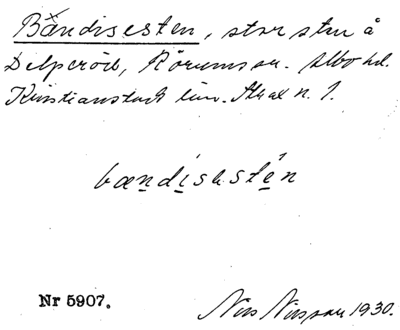 Bändisesten, stor sten å
Delperöd, Rörums sn. Albo hd.
Kristianstads län. Ak ax n. 1.
bændisestén
Nr 5907.
Nils Nilsson 1930.